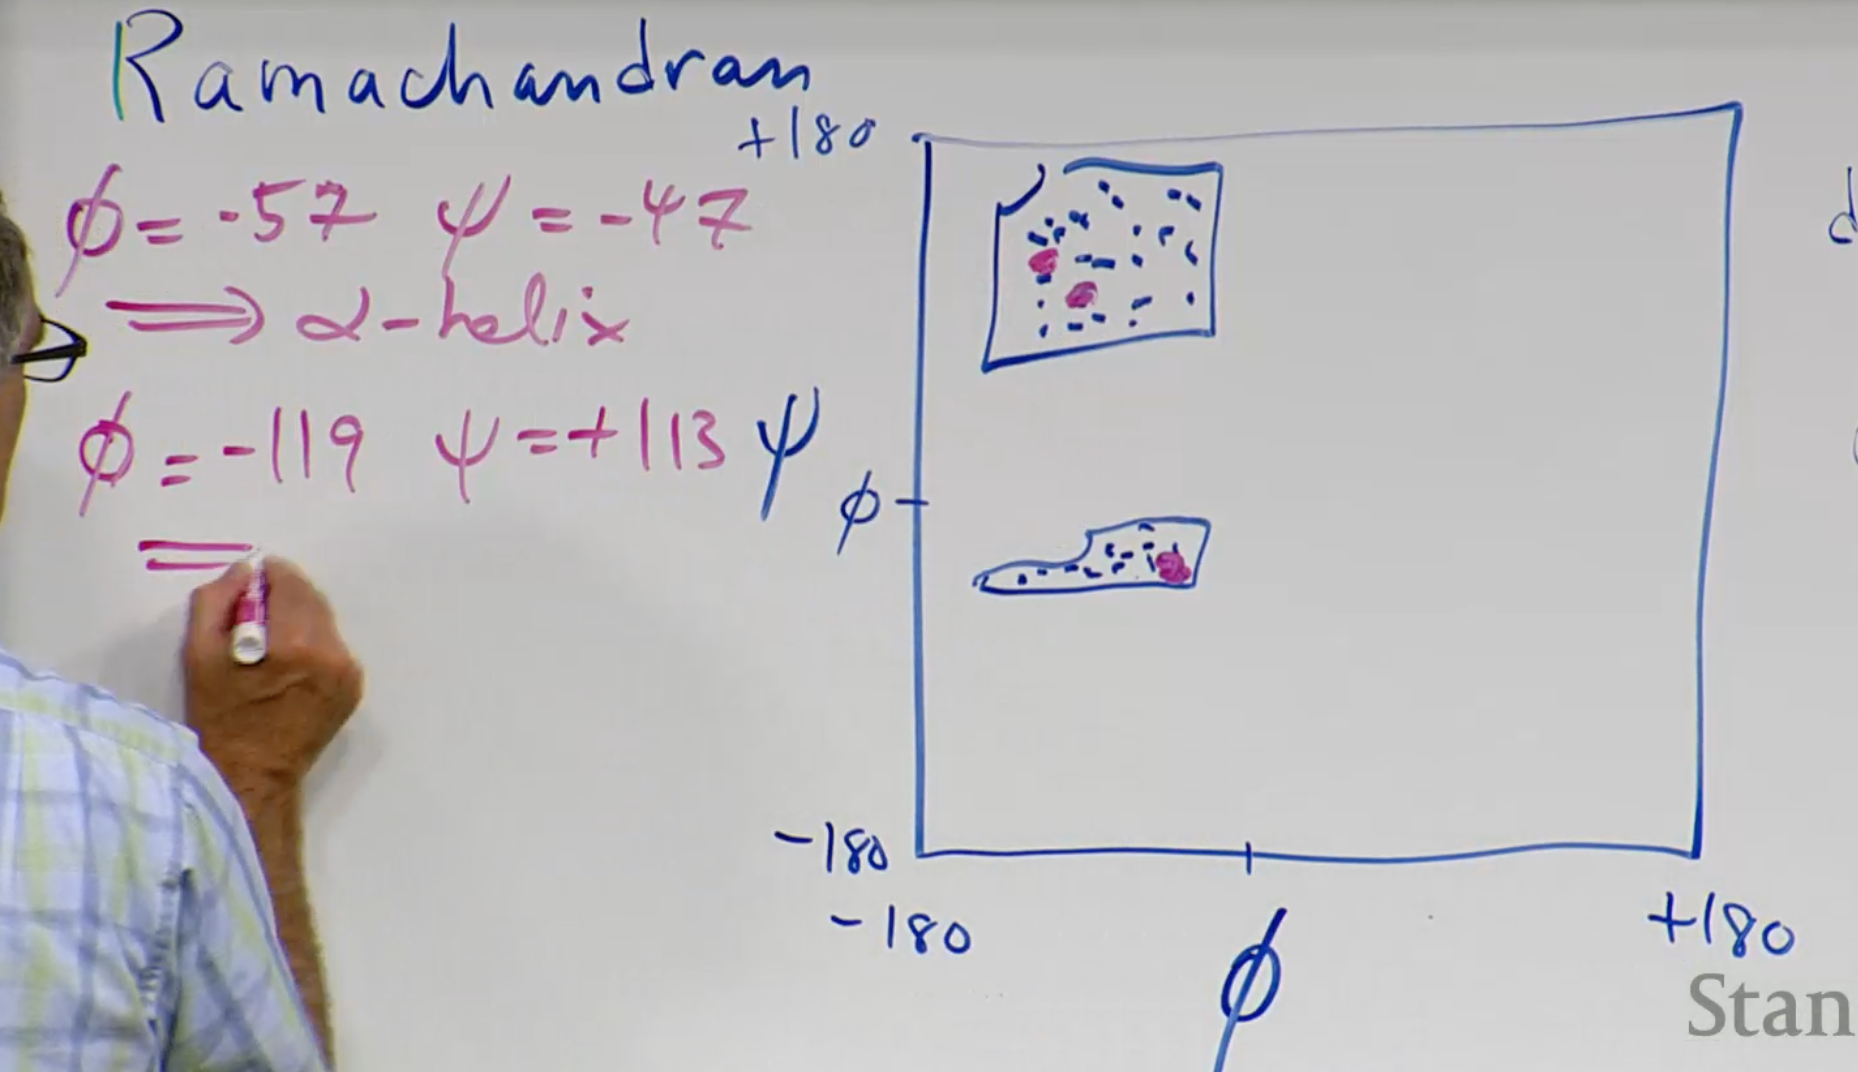 Ramachandran
+180
ϕ = -57 ψ = -47
⟹ α-helix
ϕ = -119 ψ = +113
ψ
ϕ
-180
-180
+180
ϕ
Stan